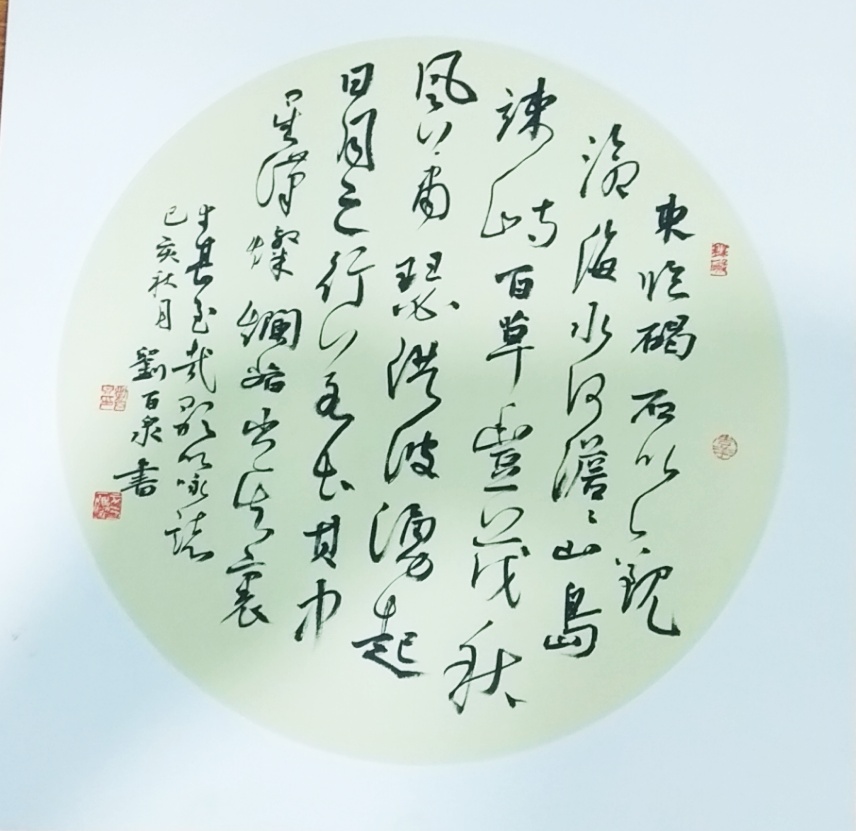 東臨碣石以觀
滄海水何澹〻山島
竦峙百草豐茂秋
風蕭瑟洪波湧起
日月之行若出其中
星漢燦爛若出其裏
幸甚至哉歌以咏誌
己亥秋月 劉百泉書